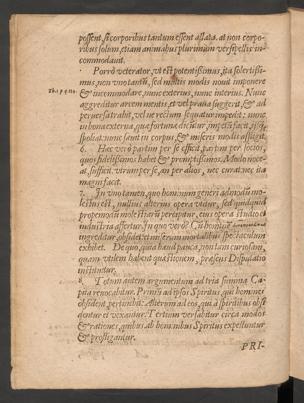 possent, si corporibus tantum essent afflata. at non corpo-
ribus solum, etiam animabus plurimùm versipelles in-
commodant.
Porrò veterator, vt est potentissimus, ita solertissi-
mus, non vno tantùm, sed multis modis nouit imponere
& incommodare, nunc exterius, nunc interius. Nunc
aggreditur arcem mentis, et vel praua suggerit, & ad
peruersa trahit, vel ne rectum sequatur impedit: nunc
in bona externa, quæ fortunæ dicuntur, impetu facit, ijsq́;
spoliat: nunc sæuit in corpus & miseris modis affligit.
6. Hæc verò partim per se efficit, partim per socios,
quos fidelissimos habet & promptissimos. Modo noce-
at, sufficit. vtrum per se, an per alios, nec curat, nec ita
magni facit.
7. In vno tamen, quo humano generi admodum mo-
lestus est, nullius alterius opera vtitur, sed quidquid
propemodùm molestiarū percipitur, eius opera studio et
industria affertur. In quo verò? Cùm
ingreditur, obsidet. tum miserum mortalibus spectaculum
exhibet. De quo, quia haud pauca, non tam curiosam,
quam vtilem habent quæstionem, præsens Disputatio
instituitur.
8. Totum autem argumentum ad tria summa Ca-
pita reuocabitur. Primū ad ipsos Spiritus, qui homines
obsident, pertinebit: Alterum ad eos, qui à spiritibus obsi-
dentur et vexantur: Tertium versabitur circa modos
& rationes, quibus ab hominibus Spiritus expelluntur
& profligantur.
PRI-